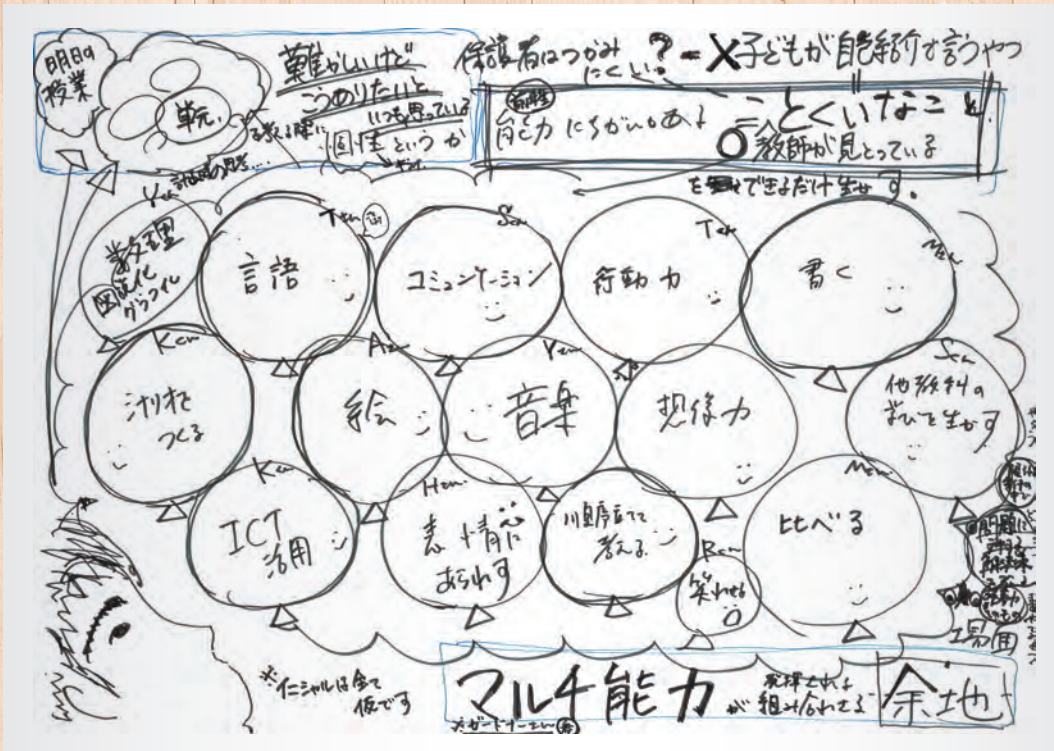 明日の
授業
単元
難かしいけど
こうありたいと
いつも思っている
保護者はつかみ
にくい?
×子どもが自己紹介で言うやつ
前程
能力にちがいがある
=とくいなこと!
○教師が見とっている
をできるだけ生せす。
数理
図式化
グラフ化
言語
コミュニケーション
行動力
書く
シナリオを
つくる
絵
音楽
想像力
他教科の
学びを生かす
ICT
活用
表情に
あらわす
順序立てて
考える
笑わせる
比べる
場面
※イニシャルは全て
仮です
マルチ能力
が
発揮される
組み合わせる
余地
※ガードナーさん